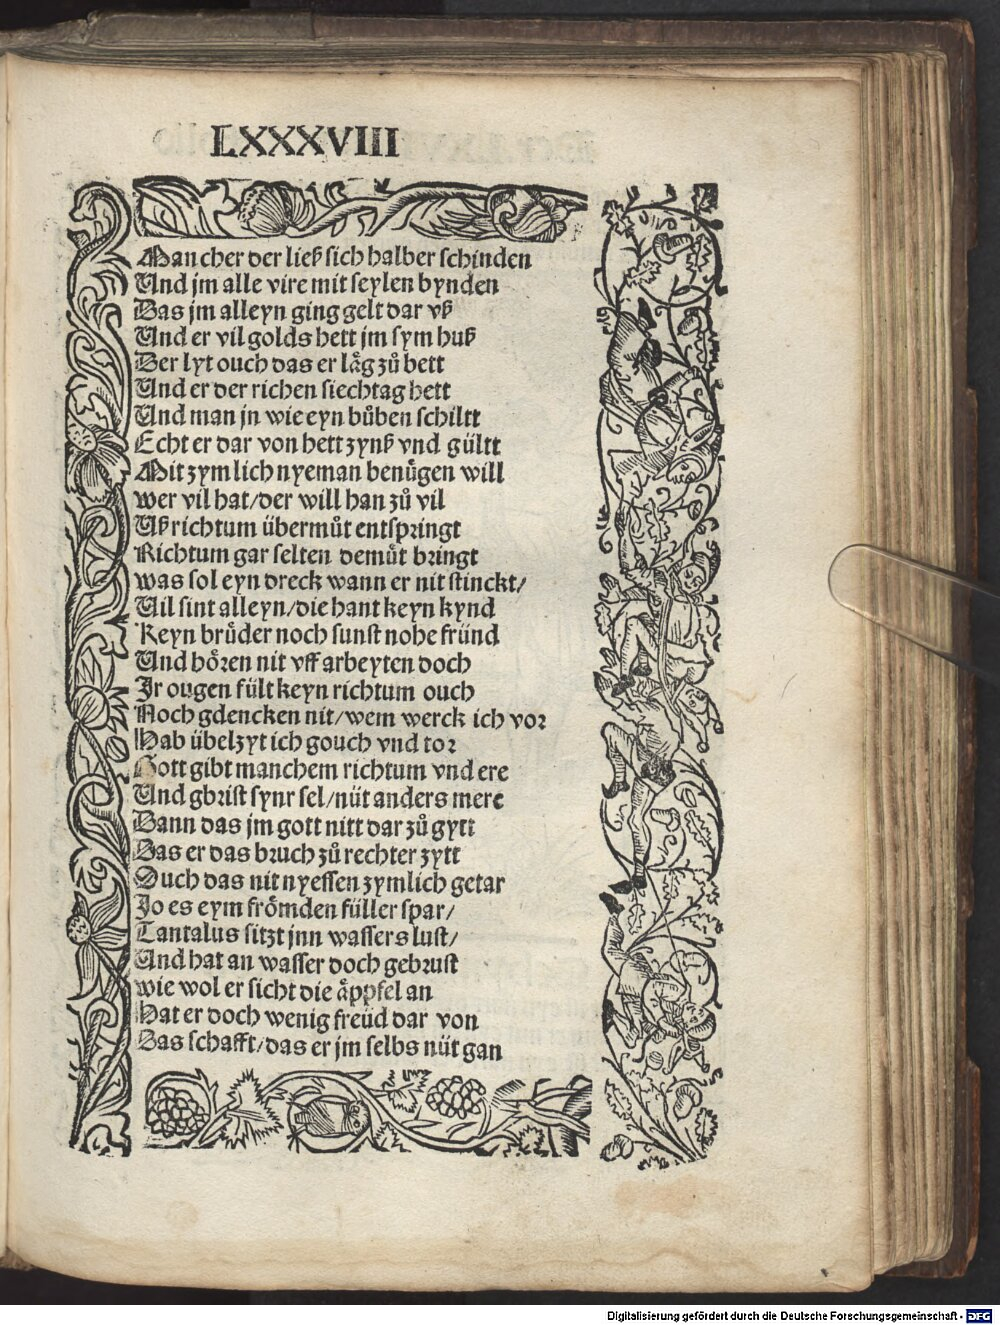 LXXXVIII
Mancher der ließ sich halber schinden
Und jm alle vire mit seylen bynden
Das jm alleyn ging gelt dar vß
Und er vil golds hett jm sym huß
Der lyt ouch das er låg zů bett
Und er der richen siechtag hett
Und man jn wie eyn bůben schiltt
Echt er dar von hett zynß vnd gültt
Mit zymlich nyeman benügen will
wer vil hat/der will han zů vil
Uß richtum übermůt entspringt
Richtum gar selten demůt bringt
was sol eyn dreck wann er nit stinckt/
Vil sint alleyn/die hant keyn kynd
Keyn brůder noch sunst nohe fründ
Und hören nit vff arbeyten doch
Jr ougen fült keyn richtum ouch
Noch gdencken nit/wem werck ich vor
Hab übelzyt ich gouch vnd tor
Gott gibt manchem richtum vnd ere
Und gbrist synr sel/nüt anders mere
Dann das jm gott nitt dar zů gytt
Das er das bruch zů rechter zytt
Ouch das nit nyessen zymlich getar
Jo es eym frömden füller spar/
Tantalus sitzt jnn wassers lust/
Und hat an wasser doch gebrust
wie wol er sicht die åppfel an
Hat er doch wenig freüd dar von
Das schafft/das er jm selbs nüt gan
Digitalisierung gefördert durch die Deutsche Forschungsgemeinschaft - DFG